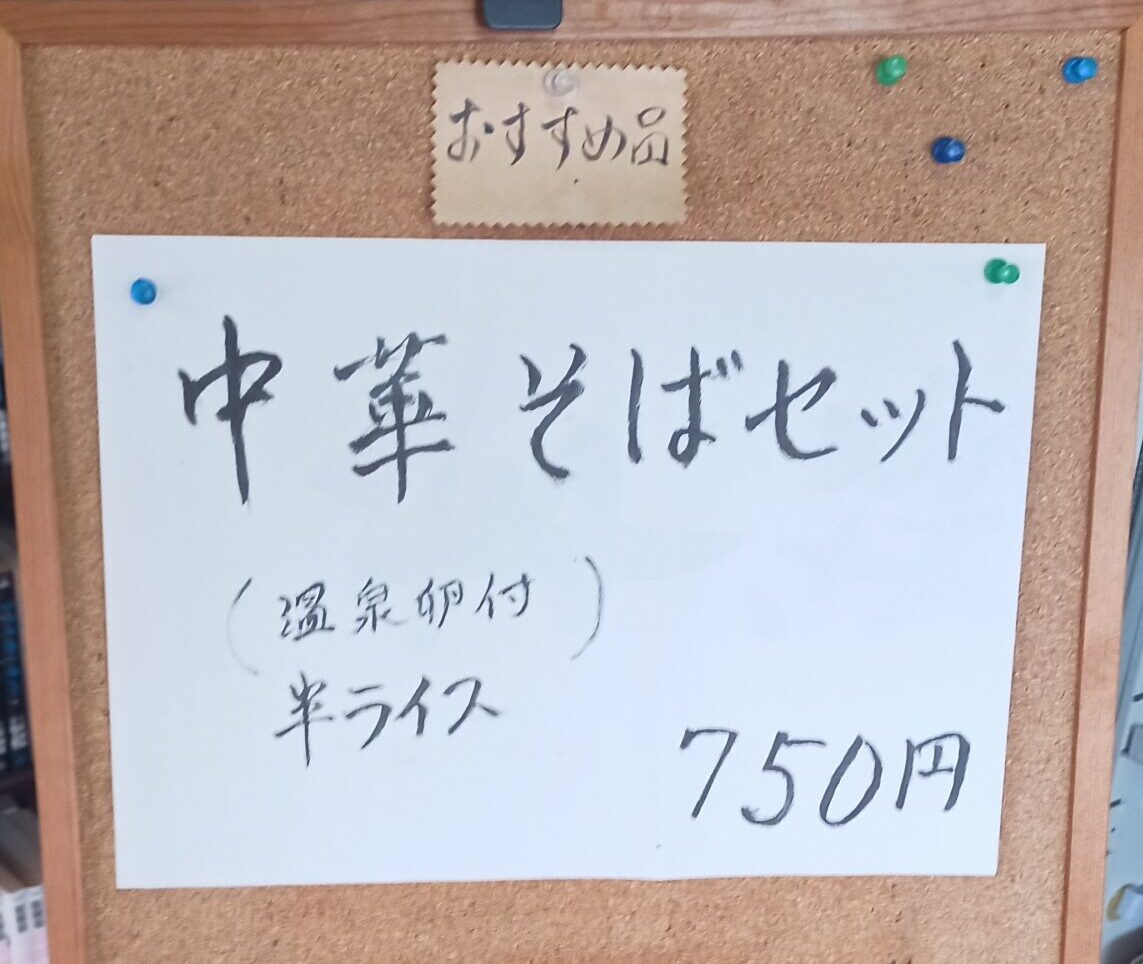 おすすめ品
中華そばセット
(温泉卵付)
半ライス
750円